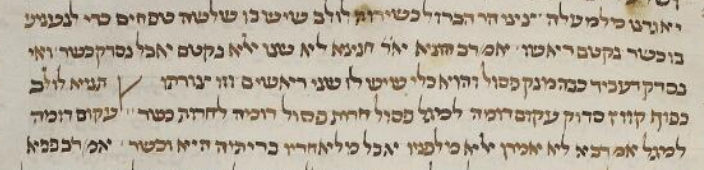 יאגדנו מלמעלה ציני הר הברזל כשירות לולב שיש בו שלשה טפחים כדי לנענע
בו כשר נקטם ראשו אמ' רב הונא לא שנו אלא נקטם אבל נסדק כשר ואי
נסדק דעביד כהמנק פסול והוא כלי שיש לו שני ראשים וזו צורתו תניא לולב
כפוף קווץ סדוק עקום דומה למגל פסול חרות פסול דומה לחרות כשר עקום דומה
למגל אמ' רבא לא אמרן אלא מלפניו אבל מלאחריו ברייתיה היא וכשר אמ' רב פפא